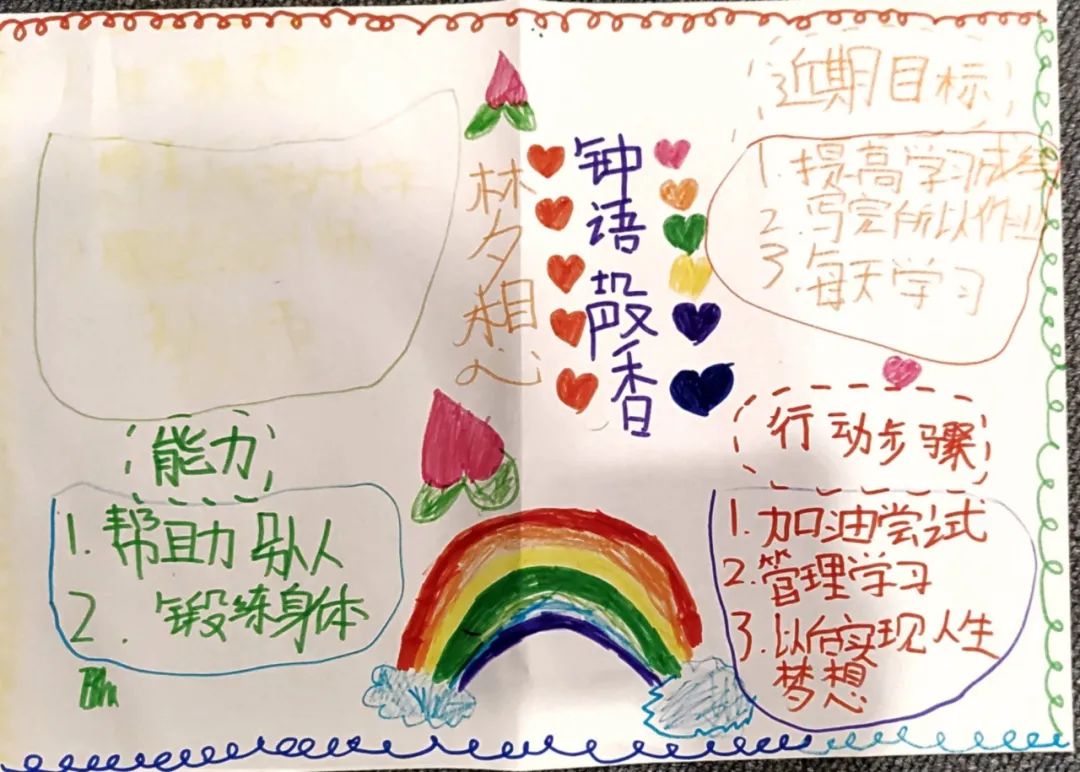 梦想
钟语殸香
近期目标
1.提高学习成绩
2.写完所以作业
3.每天学习
能力
1.帮助别人
2.锻练身体
行动步骤
1.加油尝试
2.管理学习
3.以后实现人生
梦想